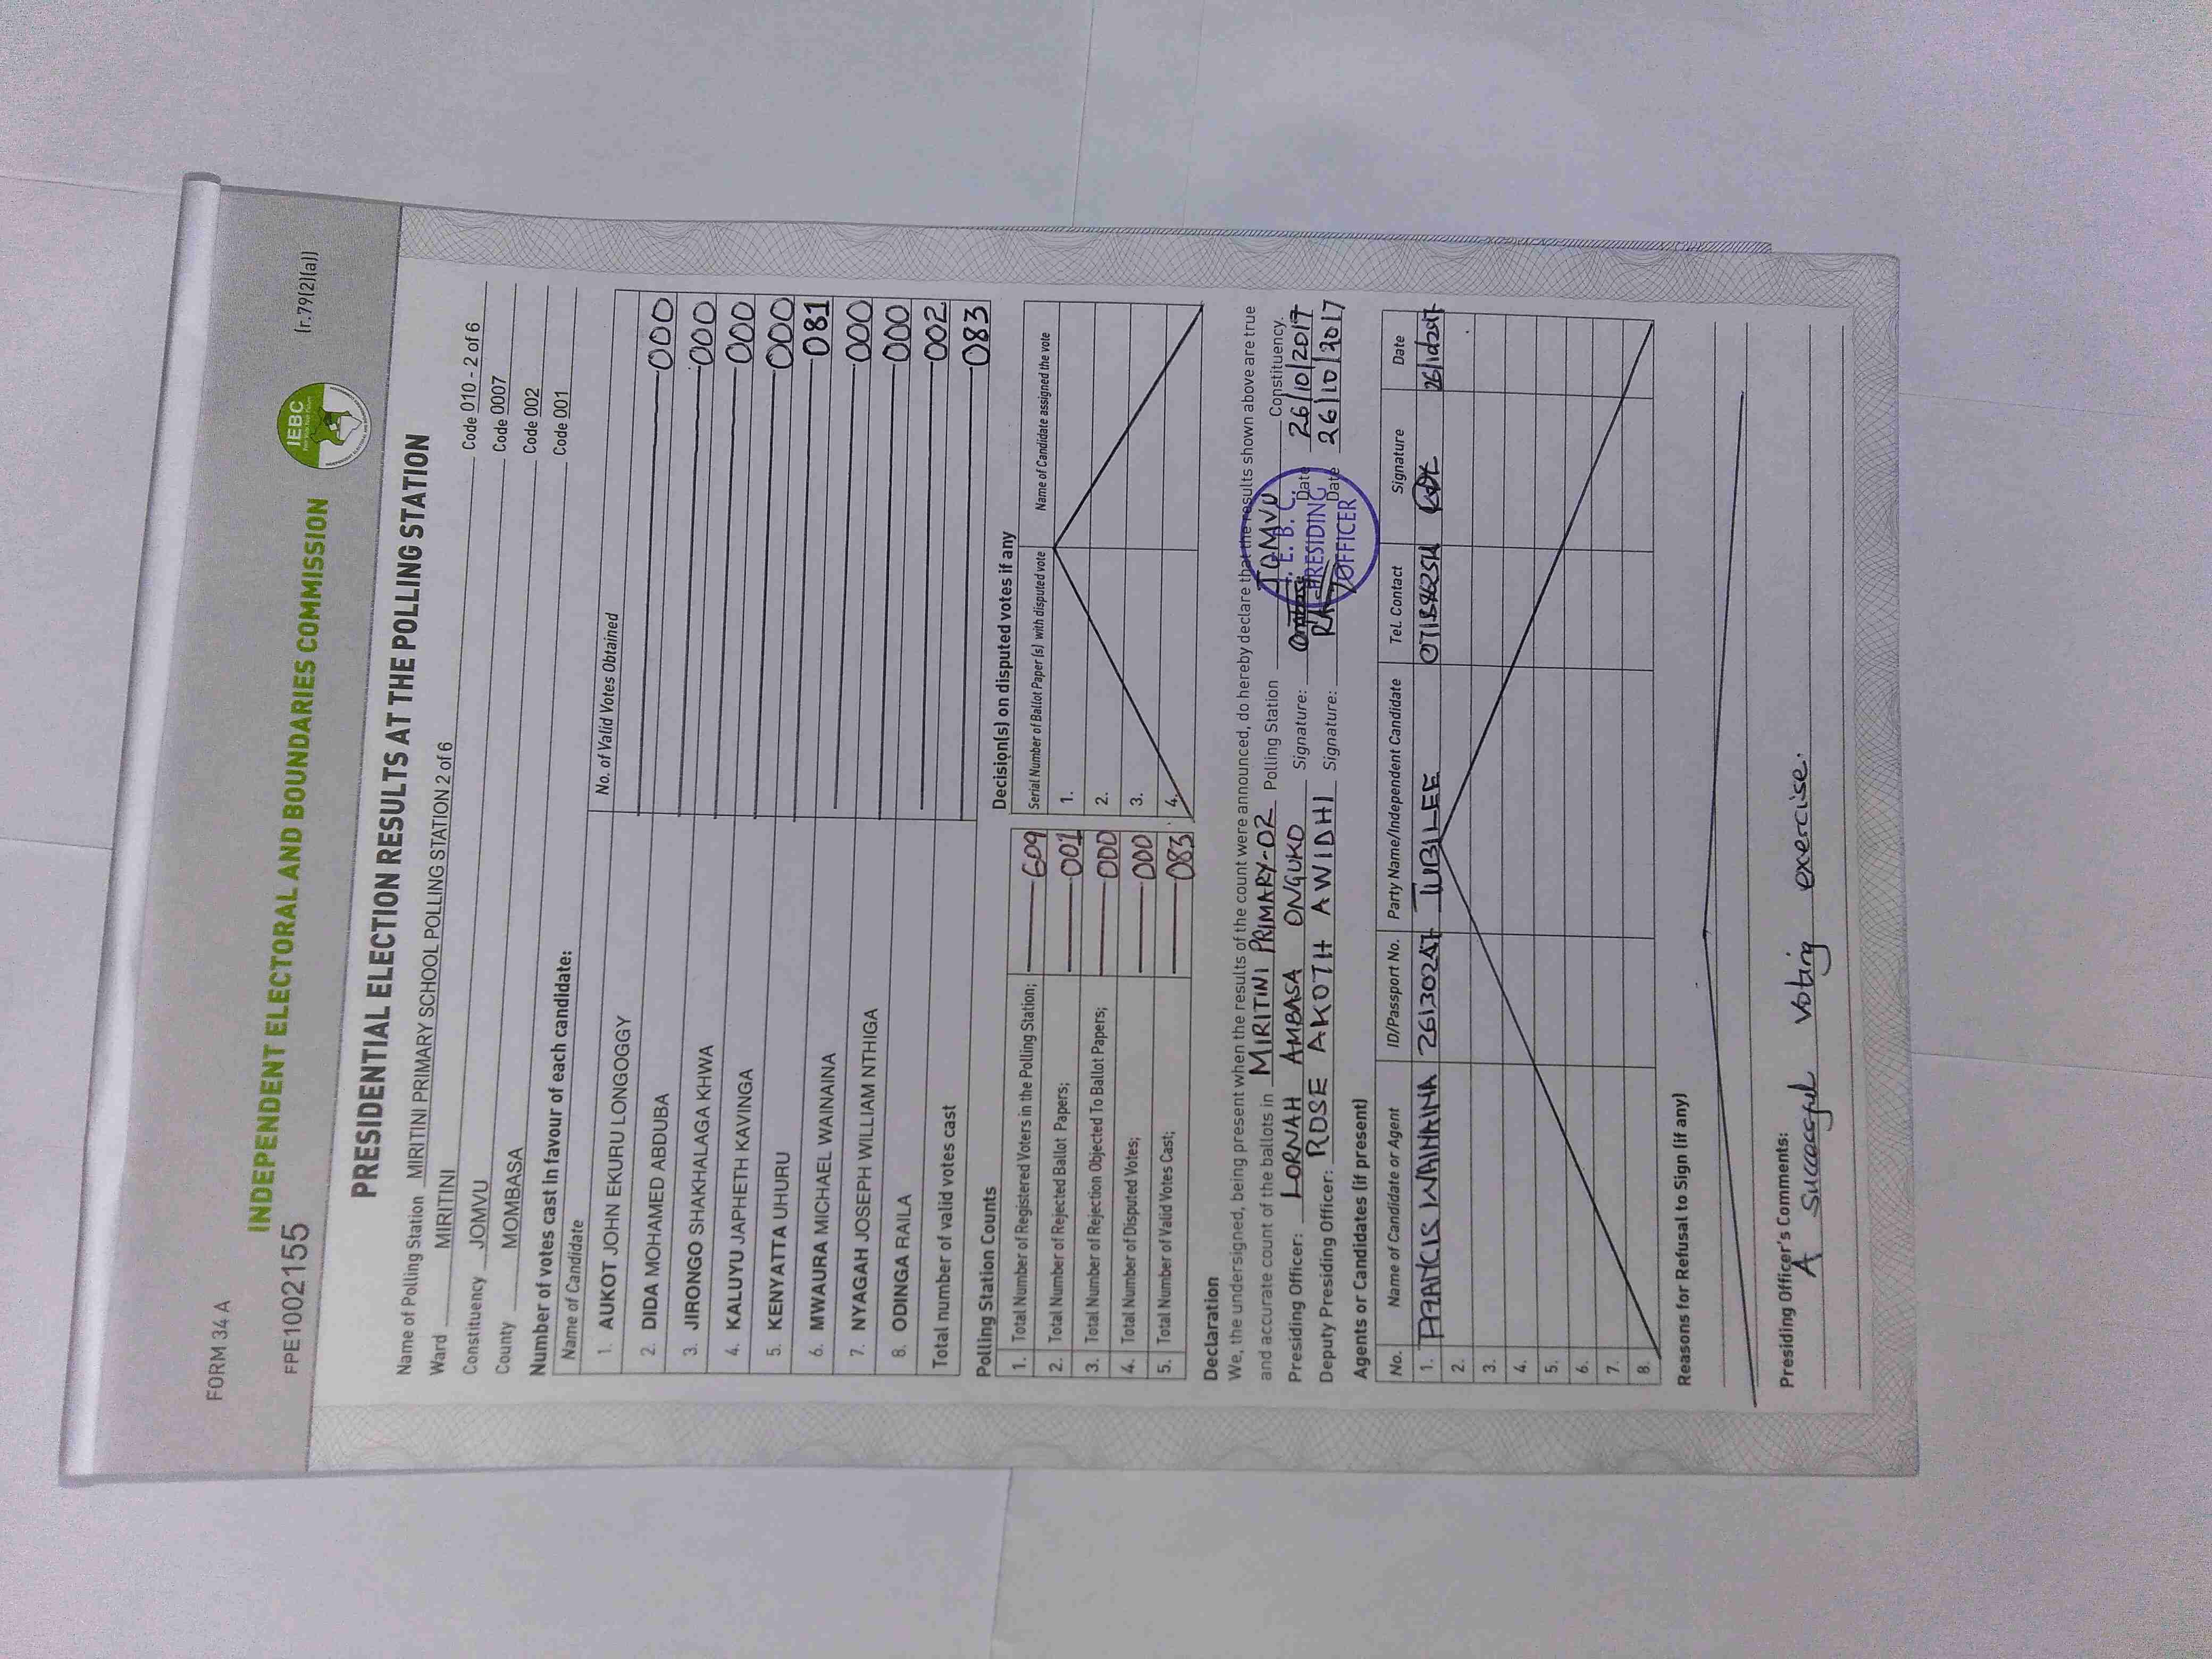 FORM 34 A
FPE1002155
INDEPENDENT ELECTORAL AND BOUNDARIES COMMISSION
IEBC
(r.79(2)(a))
PRESIDENTIAL ELECTION RESULTS AT THE POLLING STATION
Name of Polling Station MIRITINI PRIMARY SCHOOL POLLING STATION 2 of 6 Code 010 - 2 of 6
Ward MIRITINI Code 0007
Constituency JOMVU Code 002
County MOMBASA Code 001
Number of votes cast in favour of each candidate:
Name of Candidate No. of Valid Votes Obtained
1. AUKOT JOHN EKURU LONGOGGY 000
2. DIDA MOHAMED ABDUBA 000
3. JIRONGO SHAKHALAGA KHWA 000
4. KALUYU JAPHETH KAVINGA 000
5. KENYATTA UHURU 081
6. MWAURA MICHAEL WAINAINA 000
7. NYAGAH JOSEPH WILLIAM NTHIGA 000
8. ODINGA RAILA 002
Total number of valid votes cast 083
Polling Station Counts
1. Total Number of Registered Voters in the Polling Station; 609
2. Total Number of Rejected Ballot Papers; 001
3. Total Number of Rejection Objected To Ballot Papers; 000
4. Total Number of Disputed Votes; 000
5. Total Number of Valid Votes Cast; 083
Decision(s) on disputed votes if any
Serial Number of Ballot Paper (s) with disputed vote Name of Candidate assigned the vote
1.
2.
3.
4.
Declaration
We, the undersigned, being present when the results of the count were announced, do hereby declare that the results shown above are true
and accurate count of the ballots in MIRITINI PRIMARY-02 Polling Station JOMVU Constituency.
Presiding Officer: LORNAH AMBASA ONGUKO Signature: Date 26/10/2017
Deputy Presiding Officer: ROSE AKOTH AWIDHI Signature: Date 26/10/2017
I.E.B.C.
PRESIDING
OFFICER
Agents or Candidates (if present)
No. Name of Candidate or Agent ID/Passport No. Party Name/Independent Candidate Tel. Contact Signature Date
1. FRANCIS WAINAINA JUBILEE 26/10/2017
2.
3.
4.
5.
6.
7.
8.
Reasons for Refusal to Sign (if any)
Presiding Officer's Comments:
A successful voting exercise.